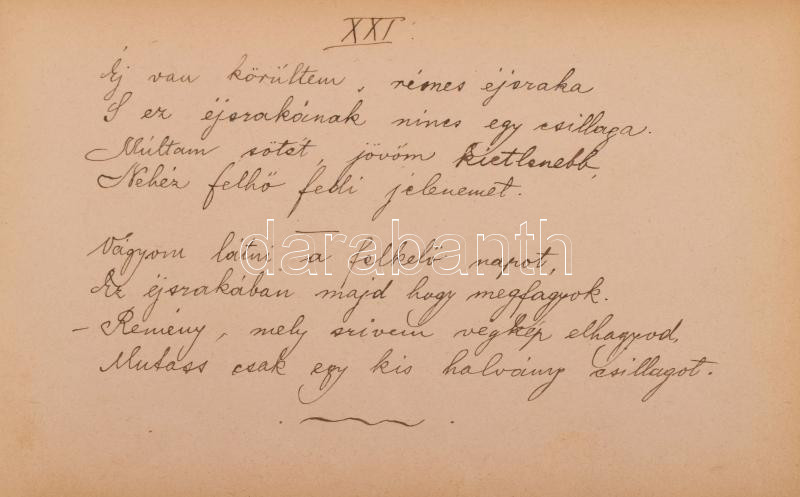 XXI.
Éj van körültem, rémes éjszaka
S ez éjszakának nincs egy csillaga.
Múltam sötét, jövöm kietlenebb,
Nehéz felhő fedi jelenemet.
Vágyom látni a felkelő napot,
Ez éjszakában majd hogy megfagyok.
– Remény, mely szivem végkép elhagyod,
Mutass csak egy kis halvány csillagot.
darabanth